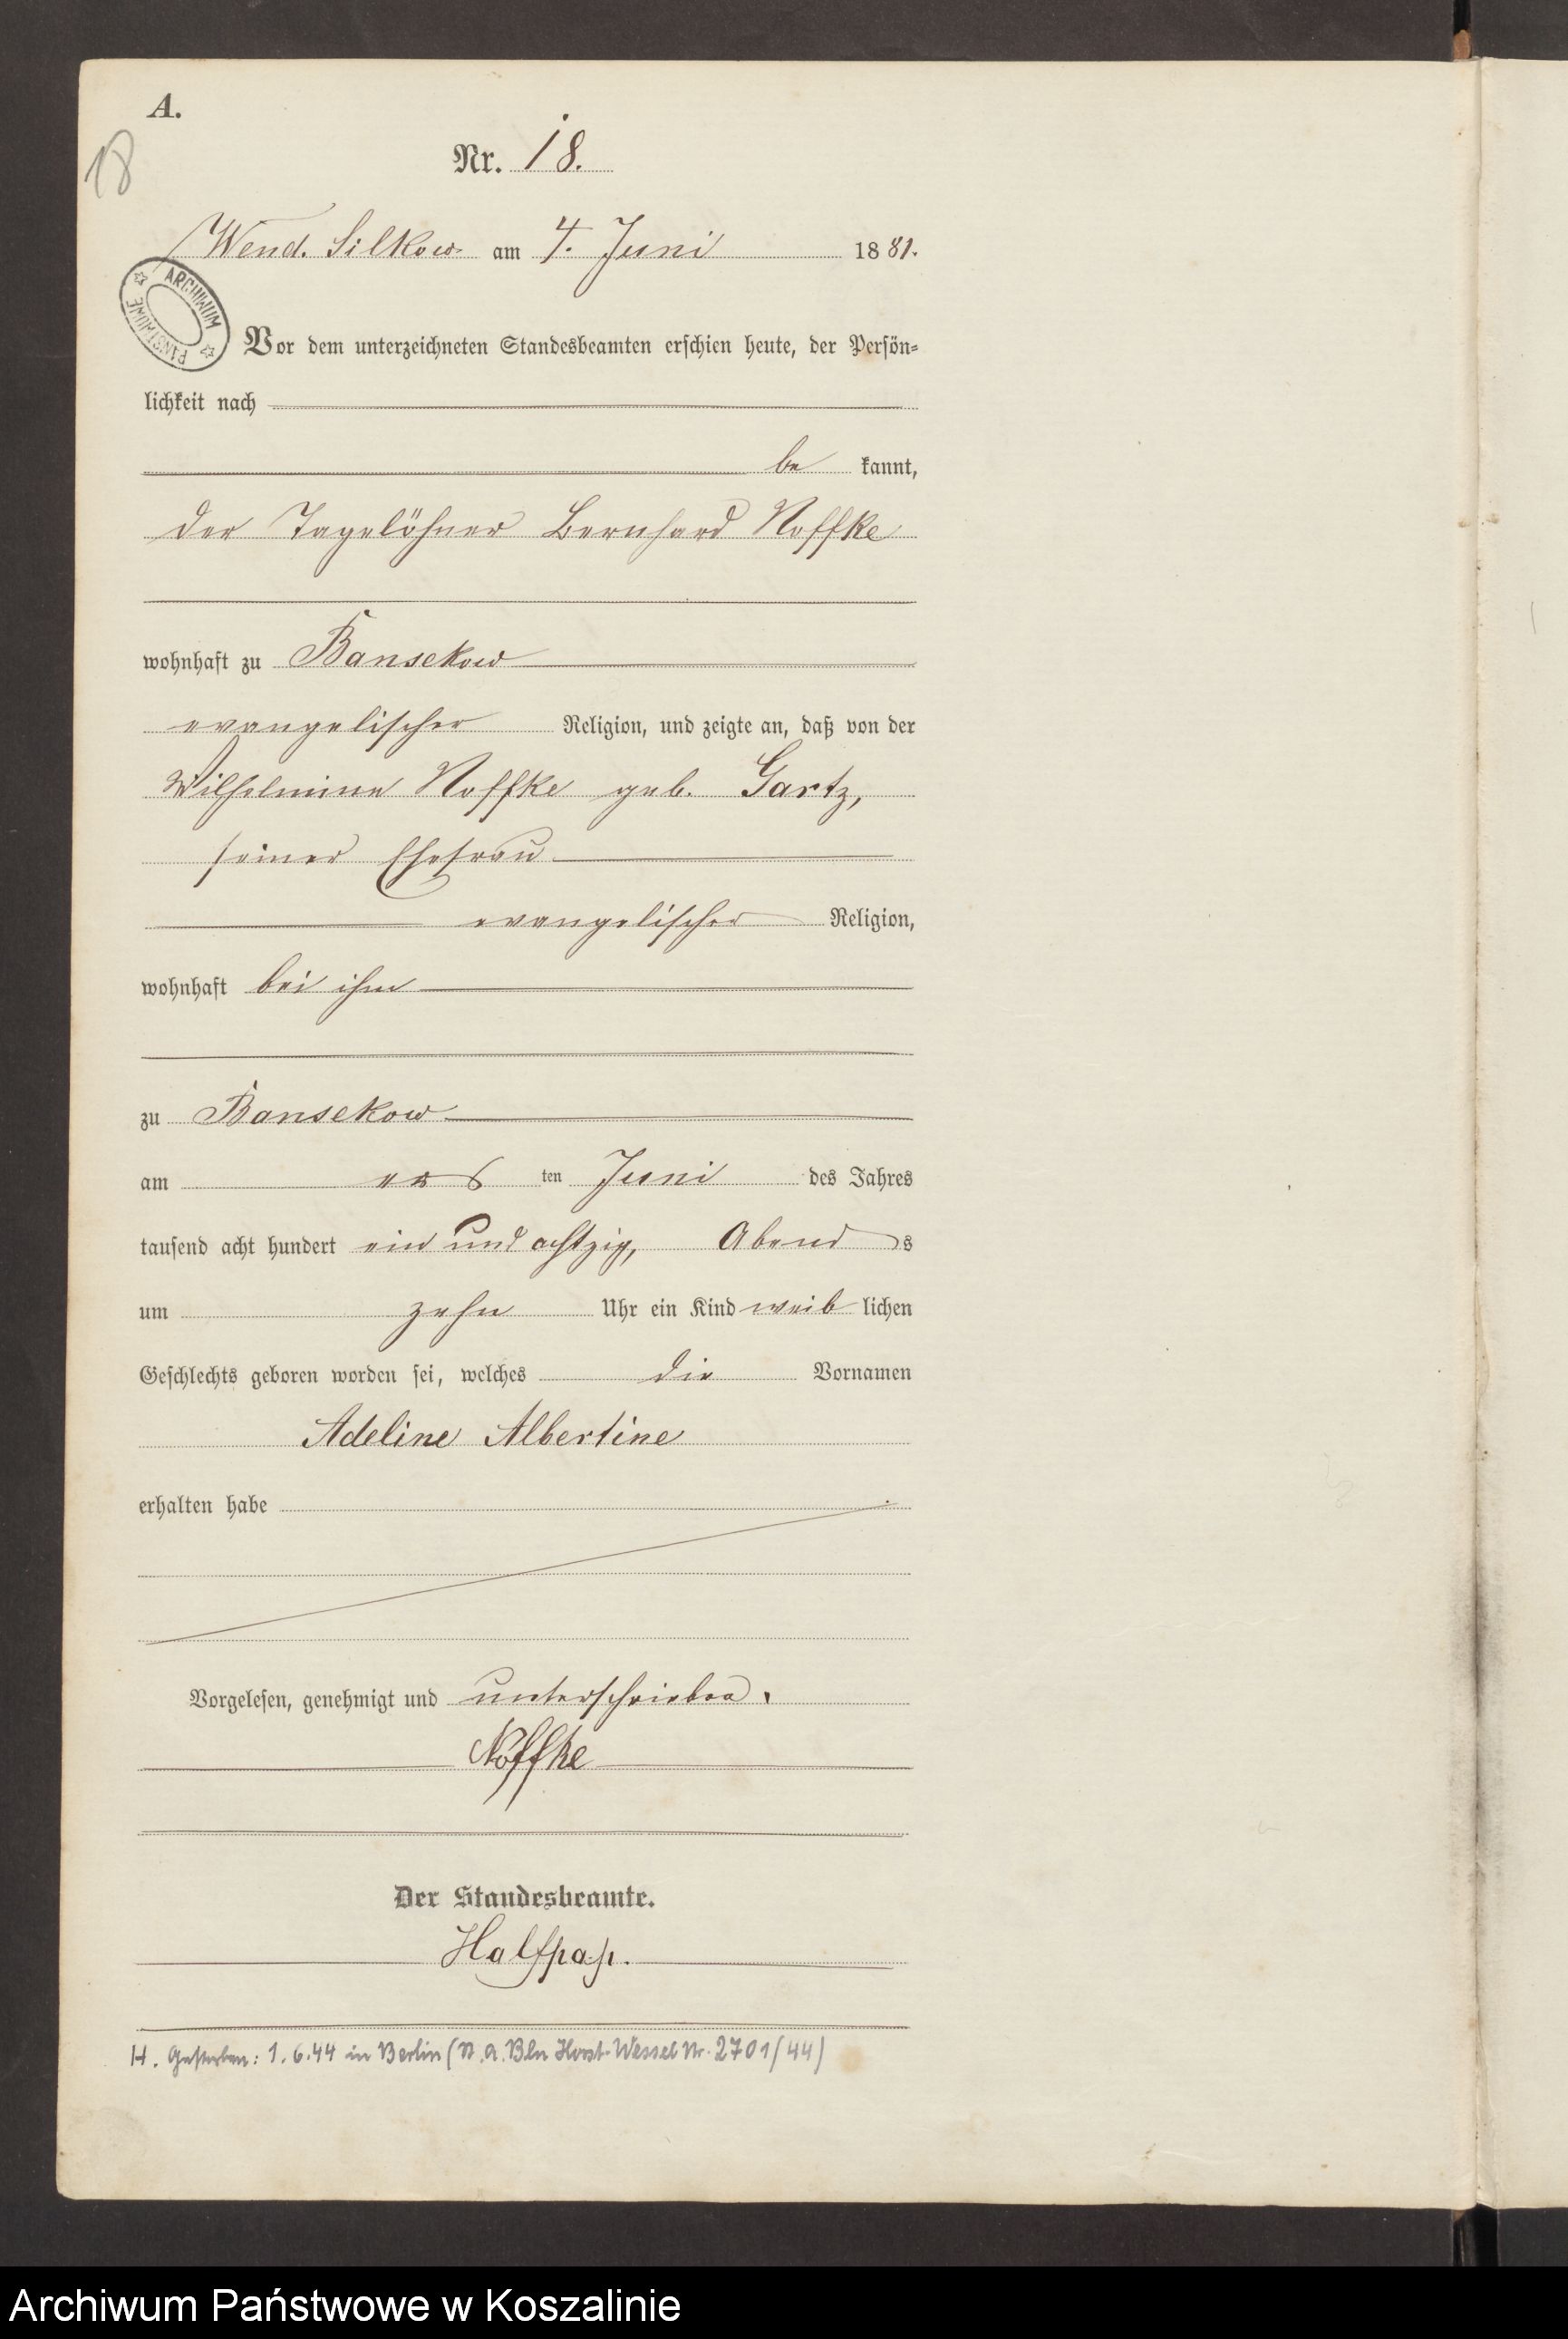 A.
18
Nr. 18.
Wend. Silkow am 4. Juni 1881.
ARCHIWUM PAŃSTWOWE
Vor dem unterzeichneten Standesbeamten erschien heute, der Persön-
lichkeit nach
be kannt,
der Tagelöhner Bernhard Noffke
wohnhaft zu Bansekow
evangelischer Religion, und zeigte an, daß von der
Wilhelmine Noffke geb. Gartz,
seiner Ehefrau
evangelischer Religion,
wohnhaft bei ihm
zu Bansekow
am ers ten Juni des Jahres
tausend acht hundert ein und achtzig, Abend s
um zehn Uhr ein Kind weib lichen
Geschlechts geboren worden sei, welches die Vornamen
Adeline Albertine
erhalten habe
Vorgelesen, genehmigt und unterschrieben.
Noffke
Der Standesbeamte.
Halfpap.
H. Gestorben: 1.6.44 in Berlin (St.A. Bln Horst-Wessel Nr. 2701/44)
Archiwum Państwowe w Koszalinie